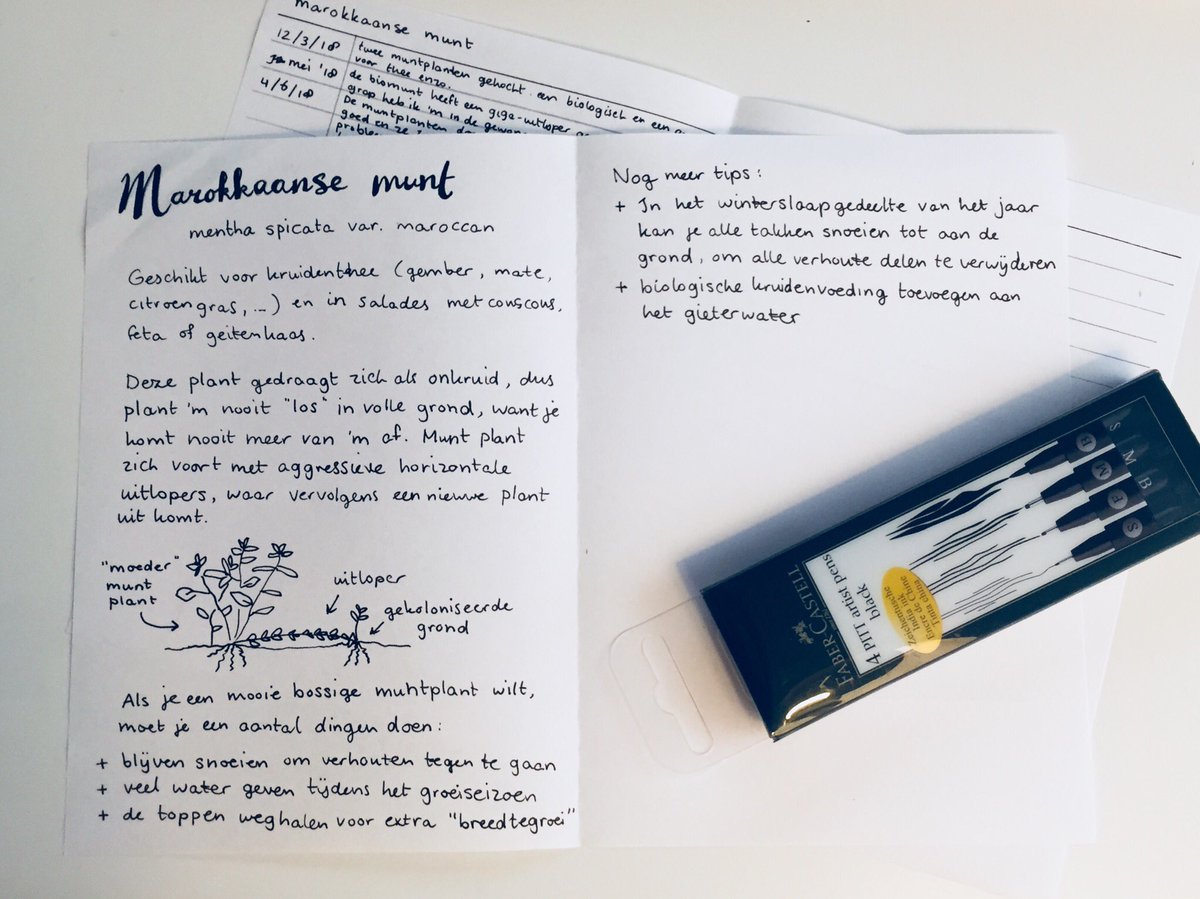 marokkaanse munt
12/3/18 twee muntplanten gekocht. een biologisch en een
voor thee enzo.
mei '18 de biomunt heeft een giga-uitloper
4/6/18 grap heb ik 'm in de
De muntplanten
goed en ze
Marokkaanse munt
mentha spicata var. maroccan
Geschikt voor kruidenthee (gember, mate,
citroengras, ...) en in salades met couscous,
feta of geitenkaas.
Deze plant gedraagt zich als onkruid, dus
plant 'm nooit "los" in volle grond, want je
komt nooit meer van 'm af. Munt plant
zich voort met aggressieve horizontale
uitlopers, waar vervolgens een nieuwe plant
uit komt.
"moeder"
munt
plant
uitloper
gekoloniseerde
grond
Als je een mooie bossige muntplant wilt,
moet je een aantal dingen doen:
+ blijven snoeien om verhouten tegen te gaan
+ veel water geven tijdens het groeiseizoen
+ de toppen weghalen voor extra "breedtegroei"
Nog meer tips:
+ In het winterslaapgedeelte van het jaar
kan je alle takken snoeien tot aan de
grond, om alle verhoute delen te verwijderen
+ biologische kruidenvoeding toevoegen aan
het gieterwater
FABER-CASTELL
4 PITT artist pens
black
Zeichentusche
India ink
Encre de Chine
Tinta china
S M B
B
M
F
S